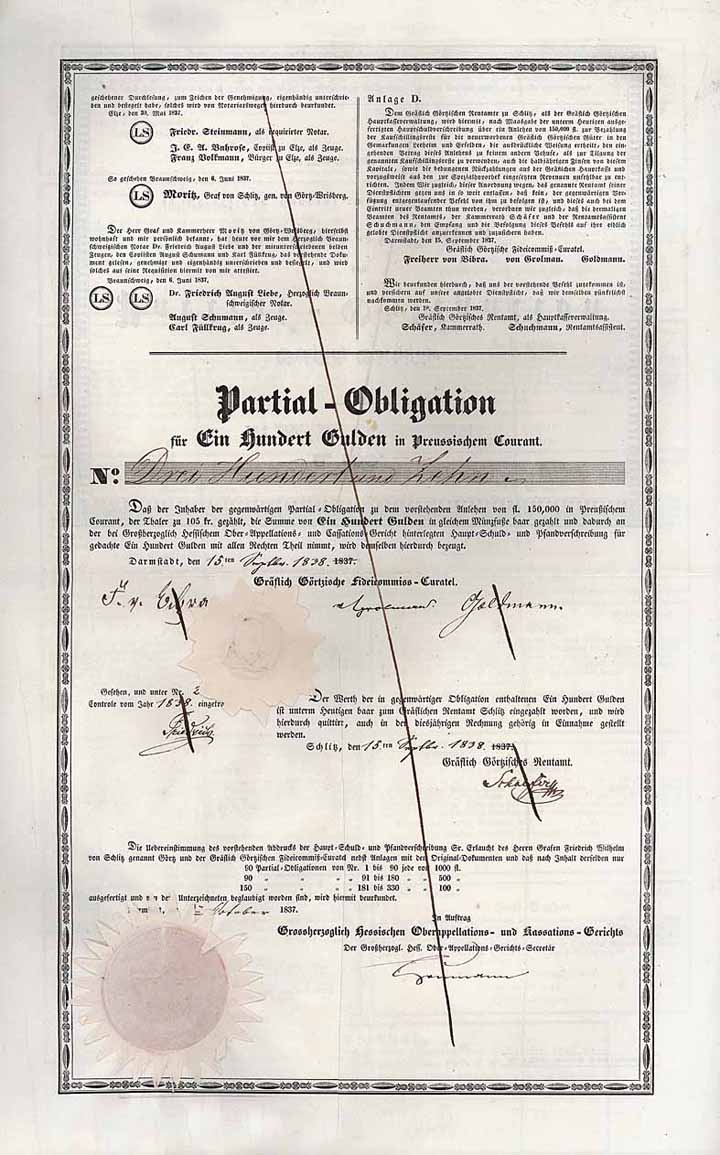 geschehener Durchlesung, zum Zeichen der Genehmigung, eigenhändig unterschrie-
ben und besiegelt habe, solches wird von Notariatswegen hierdurch beurkundet.
Elze, den 30. Mai 1837.
LS
Friedr. Steinmann, als requirierter Notar.
J. E. A. Vahrose, Copiist zu Elze, als Zeuge.
Franz Volkmann, Bürger zu Elze, als Zeuge.
So geschehen Braunschweig, den 6. Juni 1837.
LS
Moritz, Graf von Schlitz, gen. von Görtz-Wrisberg.
Der Herr Graf und Kammerherr Moritz von Görtz-Wrisberg, hierselbst
wohnhaft und mir persönlich bekannt, hat heute vor mir dem Herzoglich Braun-
schweigischen Notar Dr. Friedrich August Liebe und der mitunterschriebenen beiden
Zeugen, den Copiisten August Schumann und Carl Füllkrug, das vorstehende Doku-
ment gelesen, genehmigt und eigenhändig unterschrieben und besiegelt, und wird
solches auf seine Requisition hiermit von mir attestirt.
Braunschweig, den 6. Juni 1837.
LS LS
Dr. Friedrich August Liebe, Herzoglich Braun-
schweigischer Notar.
August Schumann, als Zeuge.
Carl Füllkrug, als Zeuge.
Anlage D.
Dem Gräflich Görtzischen Rentamte zu Schlitz, als der Gräflich Görtzischen
Hauptkasseverwaltung, wird hiermit, nach Maasgabe der unterm Heutigen ausge-
fertigten Hauptschuldverschreibung über ein Anlehen von 150,000 fl. zur Bezahlung
der Kaufschillingsreste für die neuerworbenen Gräflich Görtzischen Güter in den
Gemarkungen Leeheim und Erfelden, die ausdrückliche Weisung ertheilt, den ein-
gehenden Betrag dieses Anlehens zu keinem andern Behufe, als zur Tilgung der
genannten Kaufschillingsreste zu verwenden, auch die halbjährigen Zinsen von diesem
Kapitale, sowie die bedungenen Rückzahlungen aus der Gräflichen Hauptkasse und
vorzugsweise aus den zur Spezialhypothek eingesetzten Revenuen unfehlbar zu ent-
richten. Indem Wir zugleich, dieser Anordnung wegen, das genannte Rentamt seiner
Dienstpflichten gegen uns in so weit entlassen, daß kein, der gegenwärtigen Ver-
fügung entgegenlaufender Befehl von ihm zu befolgen ist, und dieses auch bei dem
Eintritt neuer Beamten thun werden, verordnen wir zugleich, daß die dermaligen
Beamten des Rentamts, der Kammerrath Schäfer und der Rentamtsassistent
Schuchmann, den Empfang und die Befolgung dieses Befehls auf ihre eidlich
gelobte Dienstpflicht anzuerkennen und zuzusichern haben.
Darmstadt, den 15. September 1837.
Gräflich Görtzische Fideicommiß-Curatel.
Freiherr von Bibra. von Grolman. Goldmann.
Wir beurkunden hierdurch, daß uns der vorstehende Befehl zugekommen ist,
und versichern auf unsere angelobte Dienstpflicht, daß wir demselben pünktlichst
nachkommen werden.
Schlitz, den 18. September 1837.
Gräflich Görtzisches Rentamt, als Hauptkasseverwaltung.
Schäfer, Kammerrath. Schuchmann, Rentamtsassistent.
Partial-Obligation
für Ein Hundert Gulden in Preussischem Courant.
No. Drei Hundert und Zehn
Daß der Inhaber der gegenwärtigen Partial-Obligation zu dem vorstehenden Anlehen von fl. 150,000 in Preußischem
Courant, der Thaler zu 105 kr. gezählt, die Summe von Ein Hundert Gulden in gleichem Münzfuße baar gezahlt und dadurch an
der bei Großherzoglich Hessischem Ober-Appellations- und Cassations-Gericht hinterlegten Haupt-Schuld- und Pfandverschreibung für
gedachte Ein Hundert Gulden mit allen Rechten Theil nimmt, wird demselben hierdurch bezeugt.
Darmstadt, den 15.ten Septbr. 1838. 1837.
Gräflich Görtzische Fideicommiss-Curatel.
F. v. Bibra vGrolman Goldmann.
Gesehen, und unter Nr. 2
Controle vom Jahr 1838. eingetra
Der Werth der in gegenwärtiger Obligation enthaltenen Ein Hundert Gulden
ist unterm Heutigen baar zum Gräflichen Rentamt Schlitz eingezahlt worden, und wird
hierdurch quittirt, auch in der diesjährigen Rechnung gehörig in Einnahme gestellt
werden.
Schlitz, den 15.ten Septbr. 1838. 1837.
Gräflich Görtzisches Rentamt.
Schaefer
Die Uebereinstimmung des vorstehenden Abdrucks der Haupt-Schuld- und Pfandverschreibung Sr. Erlaucht des Herrn Grafen Friedrich Wilhelm
von Schlitz genannt Görtz und der Gräflich Görtzischen Fideicommiß-Curatel nebst Anlagen mit den Original-Dokumenten und daß nach Inhalt derselben nur
90 Partial-Obligationen von Nr. 1 bis 90 jede von 1000 fl.
90 " " " 91 bis 180 " " 500 "
150 " " " 181 bis 330 " " 100 "
ausgefertigt und von der Unterzeichneten beglaubigt worden sind, wird hiermit beurkundet.
October 1837.
In Auftrag
Grossherzoglich Hessischen Oberappellations- und Kassations-Gerichts
Der Großherzogl. Hess. Ober-Appellations-Gerichts-Secretär